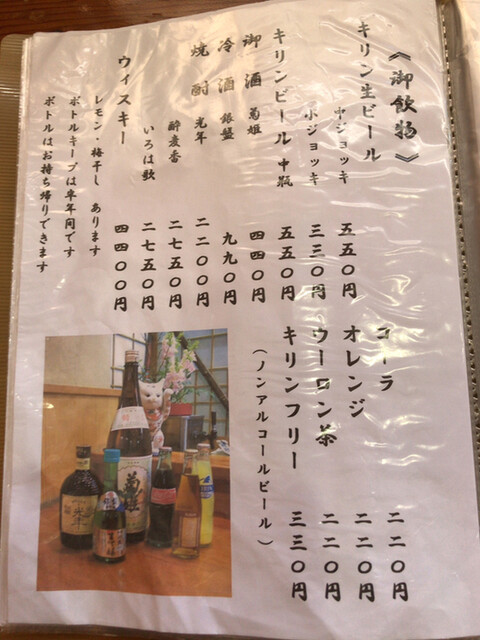 《御飲物》
キリン生ビール
中ジョッキ 五五〇円
小ジョッキ 三三〇円
キリンビール 中瓶 五五〇円
御酒 菊姫 四四〇円
冷酒 銀盤 九九〇円
焼酎 光年 二二〇〇円
酔麦香 二七五〇円
いろは歌 二七五〇円
ウィスキー 四四〇〇円
レモン・梅干し あります
ボトルキープは半年間です
ボトルはお持ち帰りできます
コーラ 二二〇円
オレンジ 二二〇円
ウーロン茶 二二〇円
キリンフリー 三三〇円
(ノンアルコールビール)
菊姫